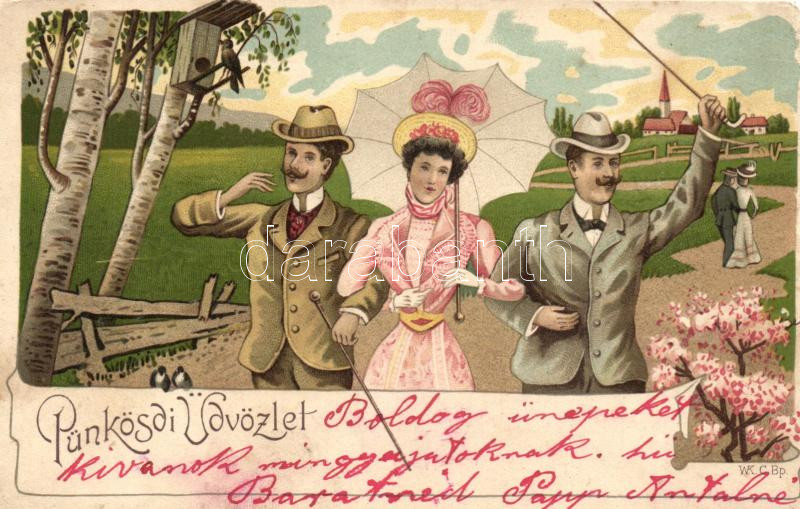 darabanth
Pünkösdi Üdvözlet Boldog ünepeket
kivánok mingyájatoknak. hü
Barátnéd Papp Antalné
W.K.C.Bp.